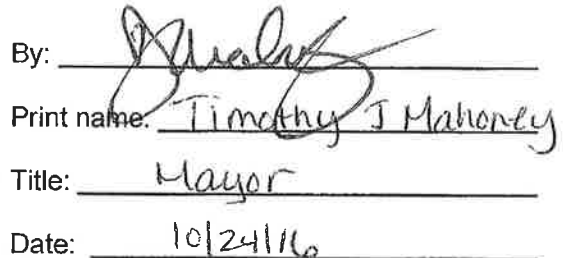 By:
Print name: Timothy J Mahoney
Title: Mayor
Date: 10/24/16